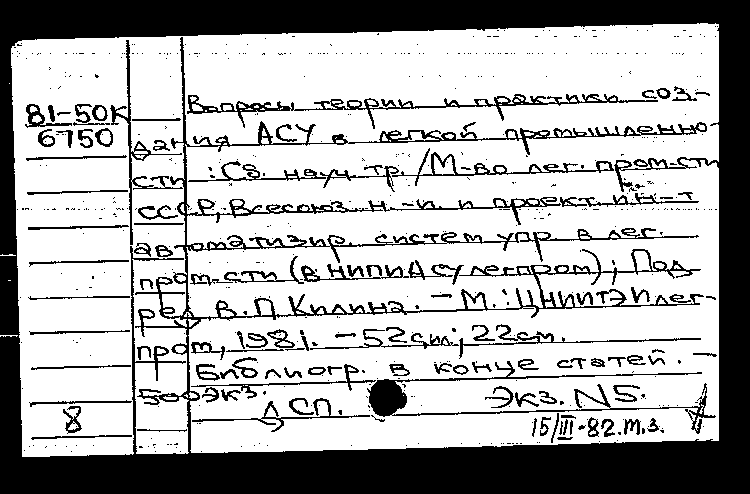 81-50к
6750
Вопросы теории и практики соз-
дания АСУ в легкой промышленно-
сти : Сб. науч. тр. / М-во лег. пром-сти
СССР, Всесоюз. н.-и. и проект. ин-т
автоматизир. систем упр. в лег.
пром-сти (ВНИПИАСУлегпром); Под
ред. В.П. Килина. - М. : ЦНИИТЭИлег-
пром, 1981. - 52с.,ил.; 22см.
Библиогр. в конце статей. -
500экз.
8
ДСП.
Экз. N5.
15/III-82.т.з.